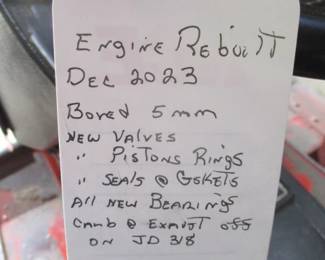 Engine Rebuilt
Dec 2023
Bored 5mm
New Valves
" Pistons Rings
" Seals @ Gskets
All New Bearings
Camb @ Exaust off
on JD 318